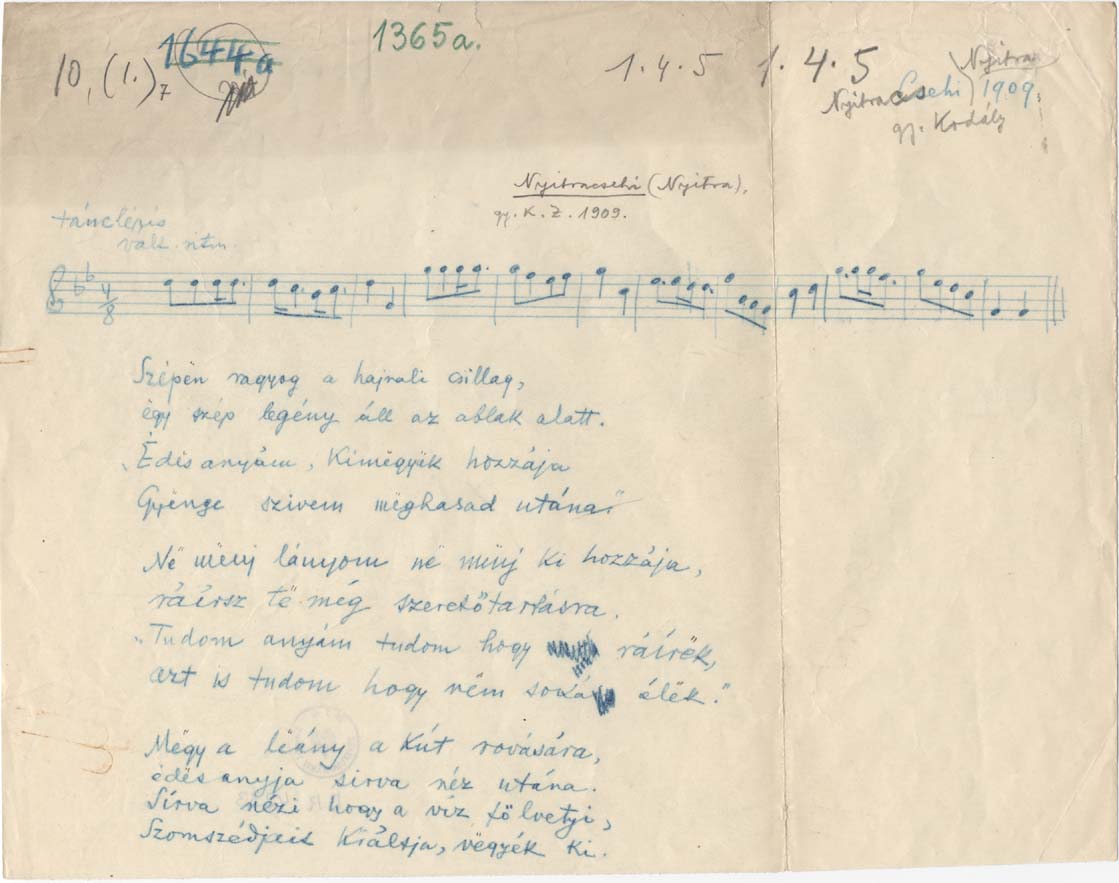 1365a.
1644a
10, (1.) 7
1.4.5 1.4.5
Nyitra
Nyitracsehi 1909.
gy. Kodály
Nyitracsehi (Nyitra),
gy. K. Z. 1909.
tánclépés
vált. ritm.
4/8
Szépën ragyog a hajnali csillag,
ëgy szép legény áll az ablak alatt.
„Édës anyám, kimëgyëk hozzája
Gyënge szivem mëghasad utána"
Në mënj lányom në mënj ki hozzája,
ráérsz të még szeretőtartásra.
„Tudom anyám tudom hogy ráírëk,
azt is tudom hogy nëm soká élëk."
Mëgy a lëány a kút rovására,
édës anyja sirva néz utána.
Sírva nézi hogy a víz fölvetyi,
Szomszédjait kiáltja, vëgyék ki.